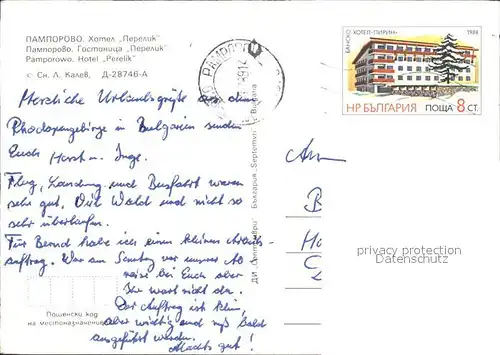 ПАМПОРОВО. Хотел „Перелик"
Пампорово. Гостиница „Перелик"
Pamporowo. Hotel „Perelik"
© Сн. Л. Калев, Д-28746-А
Herzliche Urlaubsgrüße aus dem
Rhodopengebirge in Bulgarien senden
Euch Horst u. Inge.
Flug, Landung und Busfahrt waren
sehr gut. Viel Wald und nicht so
sehr überlaufen.
Für Bernd habe ich einen kleinen
auftrag. War am Sonntag vor unserer Ab
reise bei Euch aber
Ihr wart nicht da.
Der Auftrag ist klein,
aber wichtig und muß bald
ausgeführt werden.
Machts gut!
Пощенски код
на местоназначение
ДИ „Септември" България
БАНСКО ХОТЕЛ „ПИРИН"
1988
НР БЪЛГАРИЯ ПОЩА 8 СТ.
An
B
Ha
privacy protection
Datenschutz